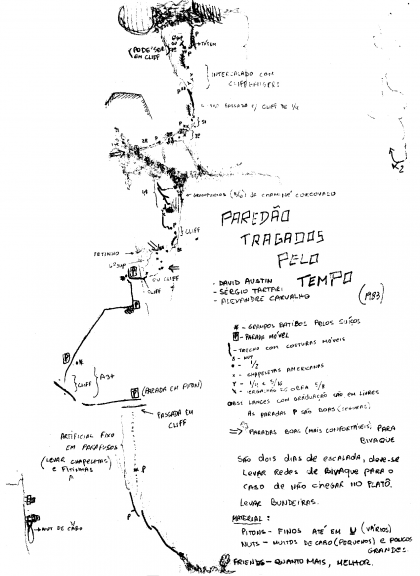 PODE SER
EM CLIFF
INTERCALADO COM
CLIFFHANGERS
PASSADA P/ CLIFF DE 1/4
DE CHAMINÉ CORCOVADO
CLIFF
PAREDÃO
TRAGADOS
PELO
TEMPO
- DAVID AUSTIN
- SÉRGIO TARTARI
- ALEXANDRE CARVALHO
(1983)
TETINHO
OU CLIFF
CLIFF
* - GRAMPOS BATIDOS PELOS SUÍÇOS
P - PARADA MÓVEL
- TRECHO COM COSTURAS MÓVEIS
- NUT
- 1/2
x - CHAPELETAS AMERICANAS
- 1/4 E 5/16
OBS: LANCES COM GRADUAÇÃO SÃO EM LIVRES
AS PARADAS P SÃO BOAS (SEGURAS)
⇒ PARADAS BOAS (MAIS CONFORTÁVEIS) PARA
BIVAQUE
CLIFF
P (PARADA EM PITON)
PASSADA EM
CLIFF
ARTIFICIAL FIXO
EM PARAFUSOS
(LEVAR CHAPELETAS)
E FITINHAS
P
P
NUT DE CABO
SÃO DOIS DIAS DE ESCALADA, DEVE-SE
LEVAR REDES DE BIVAQUE PARA O
CASO DE NÃO CHEGAR NO PLATÔ.
LEVAR BUNDEIRAS.
MATERIAL:
PITONS - FINOS ATÉ EM V (VÁRIOS)
NUTS - MUITOS DE CABO (PEQUENOS) E POUCOS
GRANDES.
FRIENDS - QUANTO MAIS, MELHOR.